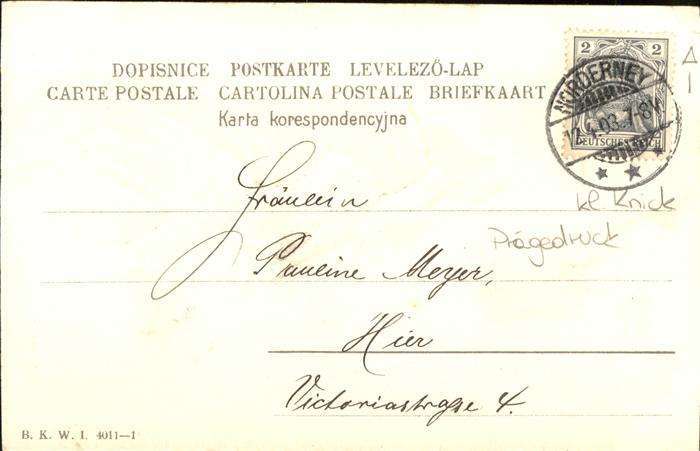 DOPISNICE POSTKARTE LEVELEZŐ-LAP
CARTE POSTALE CARTOLINA POSTALE BRIEFKAART
Karta korespondencyjna
2 2
NORDERNEY
12.4.03. 7-8V
DEUTSCHES REICH
Fräulein
kl. Knick
Prägedruck
Pauline Meyer,
Hier
Victoriastraße 4.
B. K. W. I. 4011—1